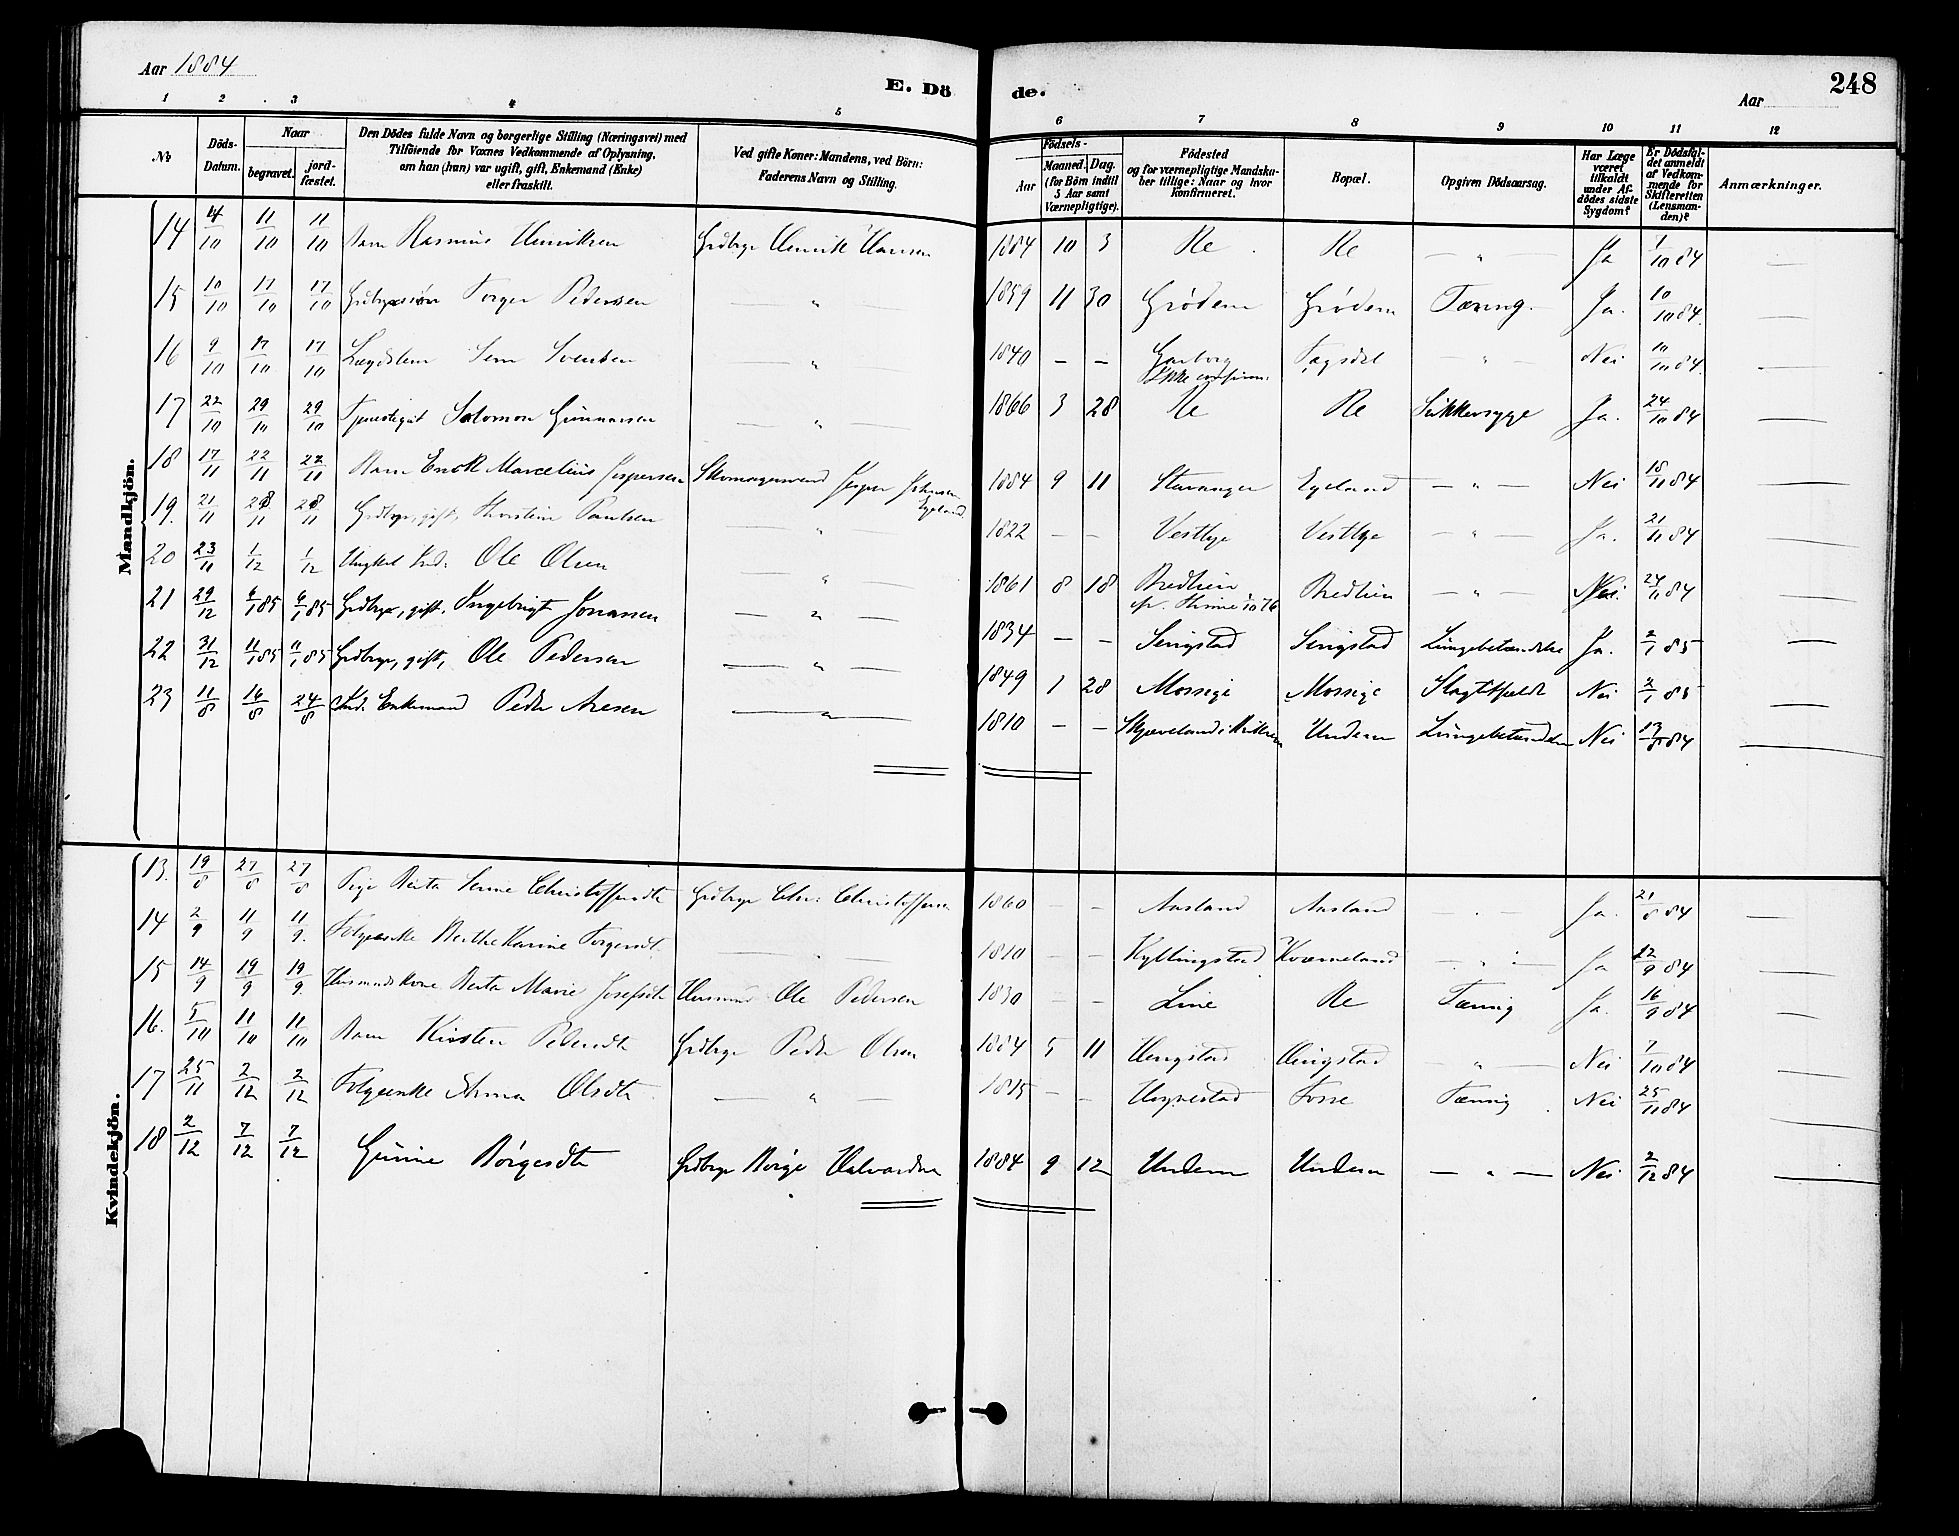 Aar 1884
E. Dö
de.
Aar
248
1 2 3 4 5 6 7 8 9 10 11 12
№
Döds-Datum.
Naar
begravet.
jord-fæstet.
Den Dödes fulde Navn og borgerlige Stilling (Næringsvei) med
Tilföiende for Voxnes Vedkommende af Oplysning,
om han (hun) var ugift, gift, Enkemand (Enke)
eller fraskilt.
Ved gifte Koner: Mandens, ved Börn:
Faderens Navn og Stilling.
Födsels-
Aar
Maaned. Dag.
(for Börn indtil
5 Aar samt
Værnepligtige).
Födested
og for værnepligtige Mandska-
ber tillige: Naar og hvor
konfirmeret.
Bopæl.
Opgiven Dödsaarsag.
Har Læge
været
tilkaldt
under Af-
dödes sidste
Sygdom?
Er Dödsfal-
det anmeldt
af Vedkom-
mende for
Skifteretten
(Lensman-
den)?
Anmærkninger.
Mandkjön.
14 4/10 11/10 11/10 Barn Rasmus Henriksen Grdbrgr Henrik Hansen 1884 10 3 Re Re — " — Ja 7/10 84 —
15 10/10 17/10 17/10 Grdbrgersön Torger Pedersen — " — 1859 11 30 Grödem Grödem Tæring. Ja. 10/10 84. —
16 9/10 17/10 17/10 Lægdslem Sem Svendsen — " — 1840 — — Garborg Ikke confirm. Tægsdal " — Nei 10/10 84. —
17 22/10 29/10 29/10 Tjenestegut Salomon Gunnarsen — " — 1866 3 28 Re Re Sukkersyge Ja. 24/10 84 —
18 17/11 22/11 22/11 Barn Enok Marcelius Jespersen Skomagersvend Jesper Johnsen Egeland. 1884 9 11 Stavanger Egeland — " — Nei 18/11 84 —
19. 21/11 28/11 28/11 Grdbrgr, gift, Thorstein Paulsen — " — 1822 — — Vestlye Vestlye — " — Ja. 21/11 84 —
20 23/11 1/12 1/12 Ungkarl Ole Olsen — " — 1861 8 18 Bredlien Bredlien — " — Nei. 24/11 84 —
21 29/12 6/1 85 6/1 85 Grdbrgr, gift. Ingebrigt Jonassen — " — 1834 — — Serigstad Serigstad Lungebetændelse Ja. 2/1 85 —
22 31/12 11/1 85 11/1 85 Grdbrgr, gift, Ole Pedersen — " — 1849 1 28 Mossige Mossige Slagtilfælde Nei 2/1 85 —
23 11/8 16/8 24/8 Ind. Enkemand Peder Aresen — " — 1810 — — Skjæveland i Undem Lungebetændelse Nei 13/8 84 —
Kvindekjön.
13. 19/8 27/8 27/8 Pige Berta Serine Christoffersdtr Grdbrgr Chr. Christoffersen 1860 — — Aasland Aasland — " — Ja. 21/8 84 —
14 2/9 11/9 11/9. Folgeenke Berthe Karine Torgersdt. — " — 1810 — — Kyllingstad Kværneland — " — Ja 12/9 84 —
15 14/9 19/9 19/9. Husmandskone Berta Marie Josefsdtr Husmand Ole Pedersen 1830 — Line Re Tæring Ja. 16/9 84 —
16. 5/10 11/10 11/10 Barn Kirsten Pedersdtr Grdbrgr Peder Olsen 1884 5 11 Hengstad Hengstad — " — Nei 7/10 84 —
17 25/11 2/12 2/12 Folgeenke Anna Olsdtr — " — 1815 — — Hognestad Fosse Tæring Nei 25/11 84 —
18 2/12 7/12 7/12 Gurine Börgesdtr Grdbrgr Börge Halvardsen 1884 9 12 Undem Undem — " — Nei 2/12 84 —